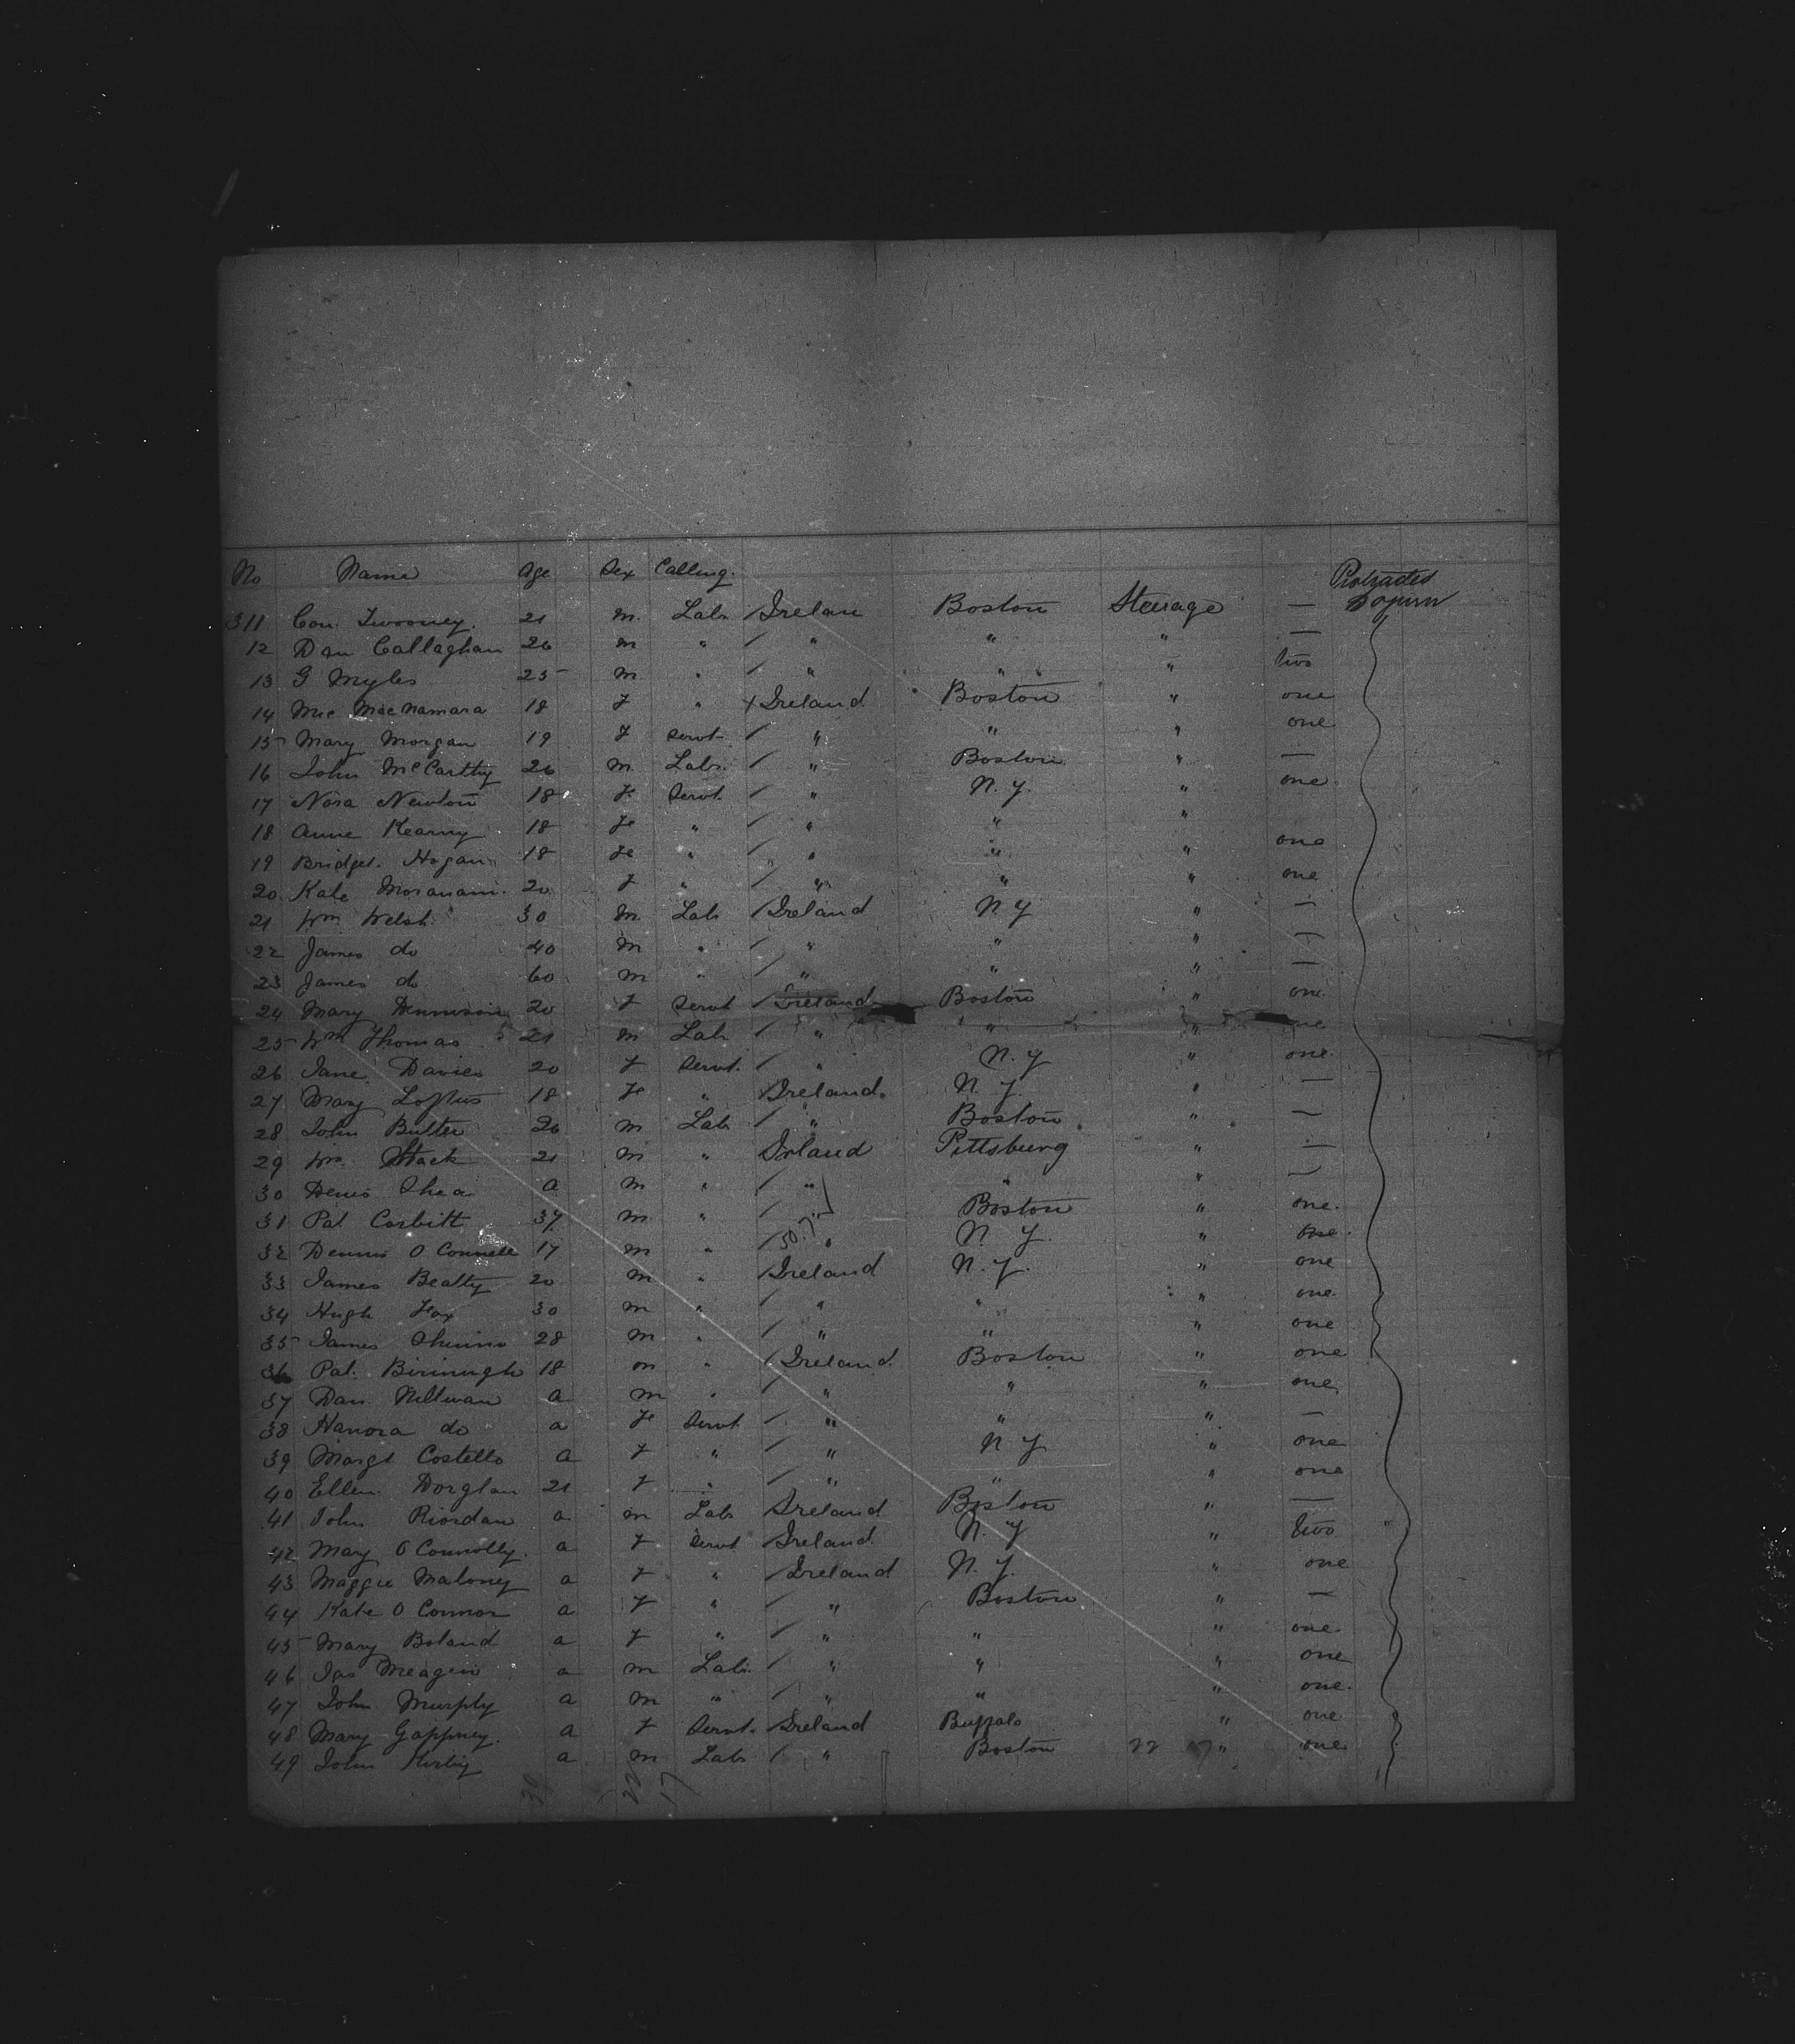 No Name Age Sex Calling. Protracted Sojurn
311 Con. Twooney. 21 m. Labr Irelan Boston Steerage —
12 Dan Callaghan 26 m " " " " —
13 G Myles 25 m " " " " two
14 Mic MacNamara 18 f " Ireland Boston " one
15 Mary Morgan 19 f Servt " " " one
16 John McCarthy 26 m. Labr. " Boston " —
17 Nora Newton 18 fe Servt. " N. Y. " one
18 Anne Kearny 18 fe " " " "
19 Bridget Hogan 18 fe " " " " one
20 Kate 20 f " " " " one
21 Wm Welsh 30 m Labr Ireland N Y " —
22 James do 40 m " " " " —
23 James do 60 m " " " " —
24 Mary Dennison 20 f Servt Ireland Boston " one
25 Wm Thomas 21 m Labr " " " one
26 Jane Davies 20 f Servt. " N. Y " one
27 Mary Loftus 18 fe " Ireland. N. Y. " —
28 John Butler 26 m Labr " Boston " —
29 Wm Stack 21 m " Irland Pittsburg " —
30 Denis Shea a m " " " " —
31 Pat Corbitt 37 m " Boston " one.
32 Dennis O Connell 17 m " 50.7. " N. Y. " one.
33 James Beatty 20 m " Ireland N. Y. " one
34 Hugh Fox 30 m " " " " one
35 James 28 m " " " " one
36 Pat. 18 m " Ireland Boston " one
37 Dan a m " " " " one
38 Hanora do a fe Servt " " " —
39 Margt Costello a f " " N Y " one
40 Ellen 21 f " " " " one
41 John Riordan a m Labr Ireland Boston " —
42 Mary O Connolly. a f Servt Ireland N. Y " two
43 Maggie Maloney a f " Ireland N. Y. " one
44 Kate O Connor a f " " Boston " —
45 Mary Boland a f " " " " one
46 Jas Meagin a m Labr. " " " one
47 John Murphy a m " " " " one.
48 Mary Gappney. a f Servt. Ireland Buffalo " one
49 John Kirby a m Labr " Boston 22 17 " one
39 22 17